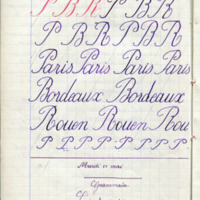 P B R P B R
P B R P B R
Paris Paris Paris Paris
Bordeaux Bordeaux
Rouen Rouen Rou
P P P P P P P
Mardi 11 mai
Grammaire